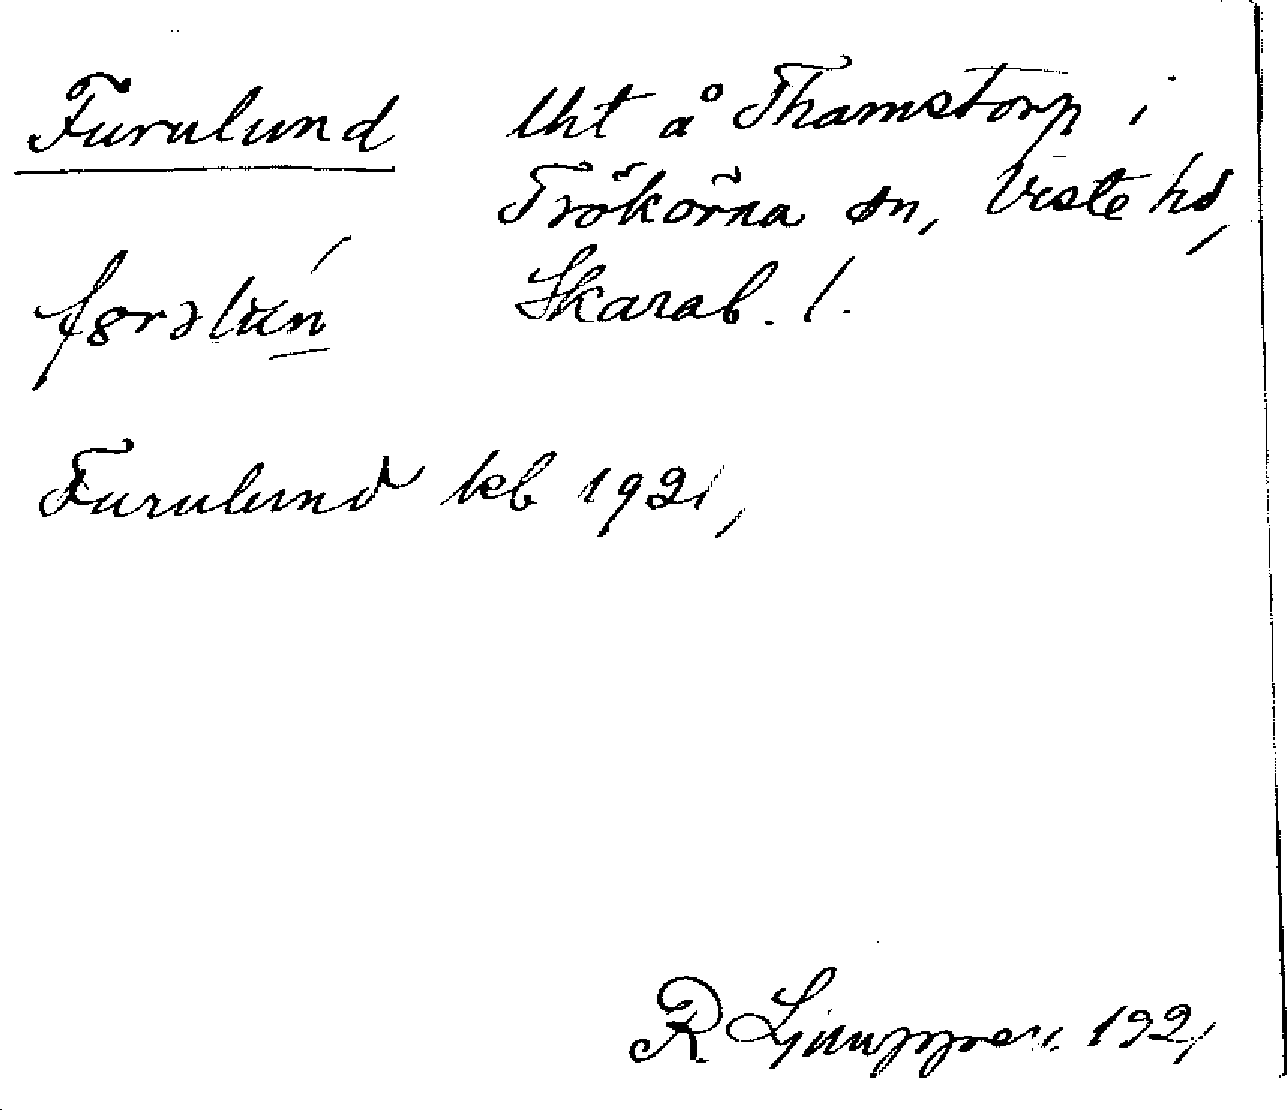 Furulund lht å Thamstorp i
Trökörna sn, Viste hd,
Skarab. l.
Furulund kb 1921,
R Ljunggren. 1921